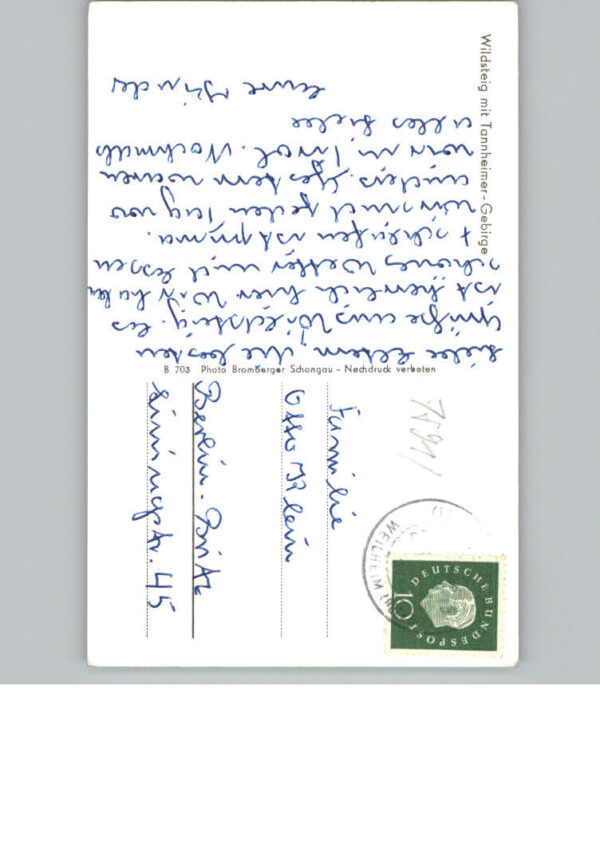 Wildsteig mit Tannheimer-Gebirge
Liebe Eltern, die besten
Grüße aus Wildsteig. Es
ist herrlich hier Wir haben
schönes Wetter und Essen
+ schlafen ist prima.
Wir sind jeden Tag wo
anders. Gestern waren
wir in Tirol. Nochmals
alles Liebe
Eure
B 703 Photo Bromberger Schongau - Nachdruck verboten
Familie
Otto Klein
Berlin-Britz
Liningstr. 45
DEUTSCHE BUNDESPOST
10
WEILHEIM